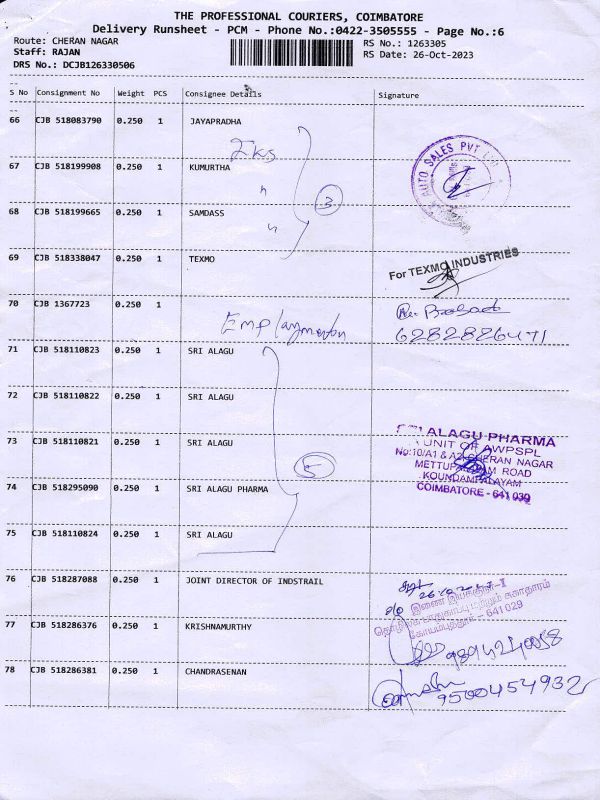 THE PROFESSIONAL COURIERS, COIMBATORE
Delivery Runsheet - PCM - Phone No.:0422-3505555 - Page No.:6
Route: CHERAN NAGAR RS No.: 1263305
Staff: RAJAN RS Date: 26-Oct-2023
DRS No.: DCJB126330506
S No Consignment No Weight PCS Consignee Details Signature
66 CJB 518083790 0.250 1 JAYAPRADHA
67 CJB 518199908 0.250 1 KUMURTHA
AUTO SALES PVT
68 CJB 518199665 0.250 1 SAMDASS
3
69 CJB 518338047 0.250 1 TEXMO
For TEXMO INDUSTRIES
70 CJB 1367723 0.250 1
6282826471
71 CJB 518110823 0.250 1 SRI ALAGU
72 CJB 518110822 0.250 1 SRI ALAGU
73 CJB 518110821 0.250 1 SRI ALAGU
5
ALAGU PHARMA
UNIT OF AWPSPL
No:10/A1 & A2 CHERAN NAGAR
METTUPALAYAM ROAD
KOUNDAMPALAYAM
COIMBATORE - 641 030
74 CJB 518295090 0.250 1 SRI ALAGU PHARMA
75 CJB 518110824 0.250 1 SRI ALAGU
76 CJB 518287088 0.250 1 JOINT DIRECTOR OF INDSTRAIL
இணை இயக்குநர்-I
தொழிலக பாதுகாப்பு மற்றும் சுகாதாரம்
கோயம்புத்தூர் - 641 029
77 CJB 518286376 0.250 1 KRISHNAMURTHY
78 CJB 518286381 0.250 1 CHANDRASENAN
9500454932